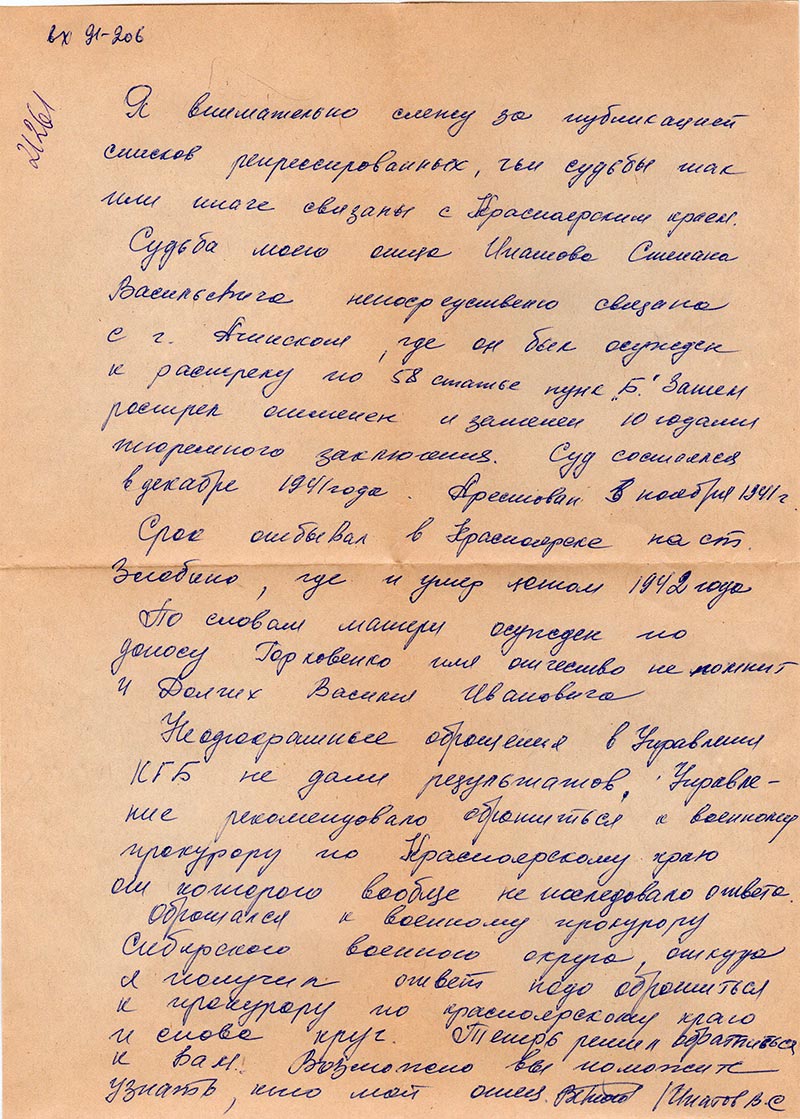 вх 91-206
21261
Я внимательно слежу за публикацией
списков репрессированных, чьи судьбы так
или иначе связаны с Красноярским краем.
Судьба моего отца Ипатова Степана
Васильевича непосредственно связана
с г. Ачинском, где он был осужден
к расстрелу по 58 статье пунк „Б." Затем
расстрел отменен и заменен 10 годами
тюремного заключения. Суд состоялся
в декабре 1941 года. Арестован ноября 1941 г.
Срок отбывал в Красноярске на ст.
Злобино, где и умер летом 1942 года
По словам матери осужден по
доносу Горховенко имя отчество не помнит
и Долгих Василия Ивановича
Неоднократные обращения в Управления
КГБ не дали результатов, Управле-
ние рекомендовало обратиться к военному
прокурору по Красноярскому краю
от которого вообще не последовало ответа.
Обращался к военному прокурору
Сибирского военного округа, откуда
я получил ответ надо обратиться
к прокурору по красноярскому краю
и снова круг. Теперь решил обратиться
к Вам. Возможно вы поможите
узнать, кто мой отец. /Ипатов В.С